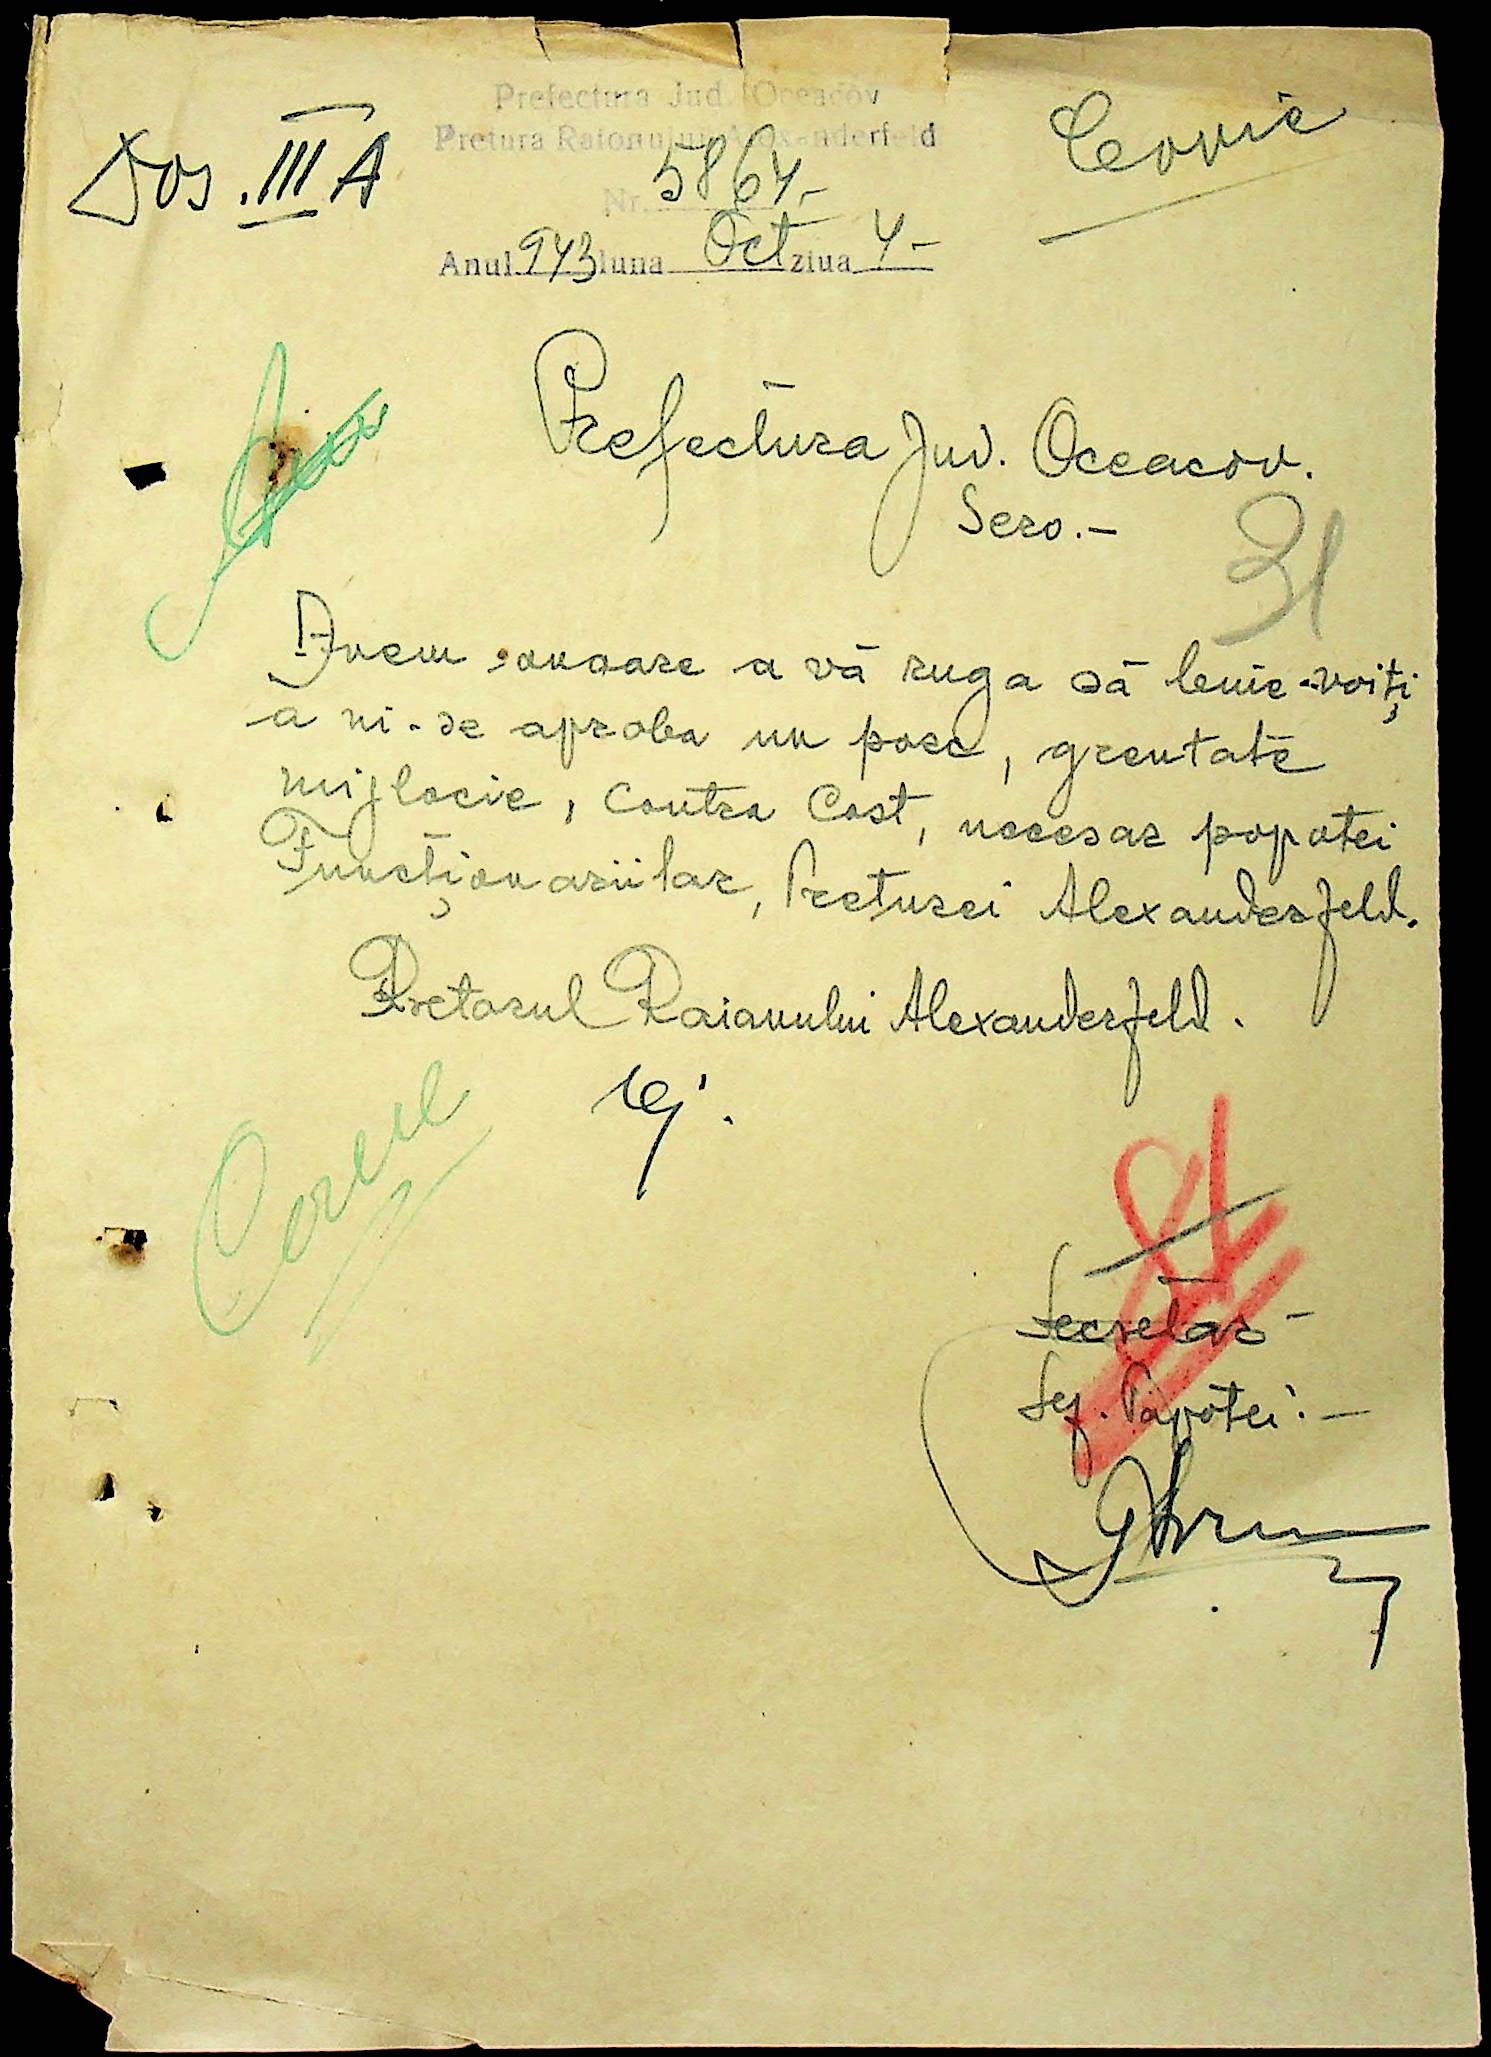 Prefectura Jud. Oceacov
Pretura Raionului Alexanderfeld
Dos. III A
Nr. 5864.-
Anul 943 luna Oct ziua 4-
Prefectura Jud. Oceacov.
Sero.-
31
Avem onoare a vă ruga să benie-voiți
a ni-se aproba un porc, greutate
mijlocie, contra Cost, necesar popotei
Funcționariilor, Preturei Alexanderfeld.
Pretorul Raionului Alexanderfeld.
Cerere
Secretar-
Șef. Popotei.-